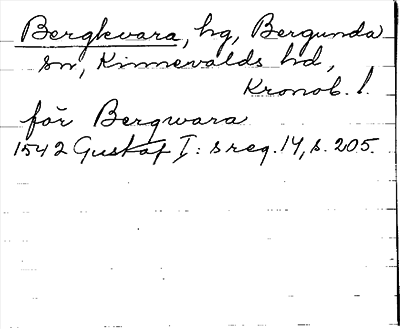 Bergkvara, hg, Bergunda
sn, Kinnevalds hd,
Kronob. l.
för Bergwara
1542 Gustaf I: s reg. 14, s. 205.